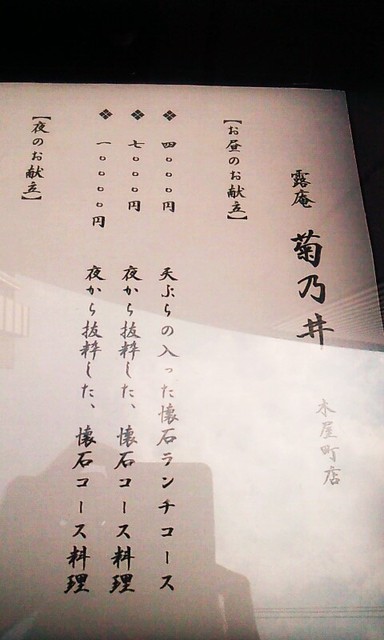 露庵 菊乃井 木屋町店
【お昼のお献立】
❖ 四〇〇〇円 天ぷらの入った懐石ランチコース
❖ 七〇〇〇円 夜から抜粋した、懐石コース料理
❖ 一〇〇〇〇円 夜から抜粋した、懐石コース料理
【夜のお献立】